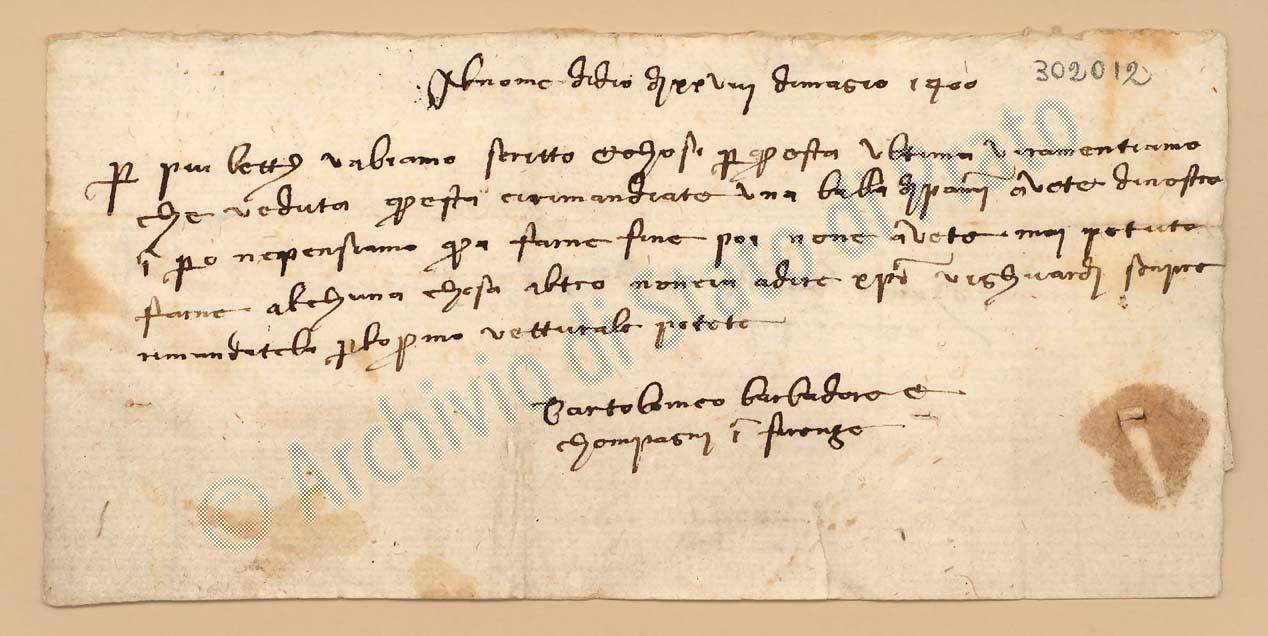 Al nome di dio dì xxviii di magio 1400
302012
Per piu lett. v abiamo scritto e chosi per questa ultima vi ramentiamo
che veduta questa ci rimandiate una balla di panni avete di nostro
in però ne pensiamo qua farne fine poi none avete mai potuto
farne alchuna chosa altro non ci à a dire xpo vi ghuardi senpre
rimandatela per lo primo vetturale potete
Bartolomeo barbadoro e
chompagni in firenze
© Archivio di Stato di Prato